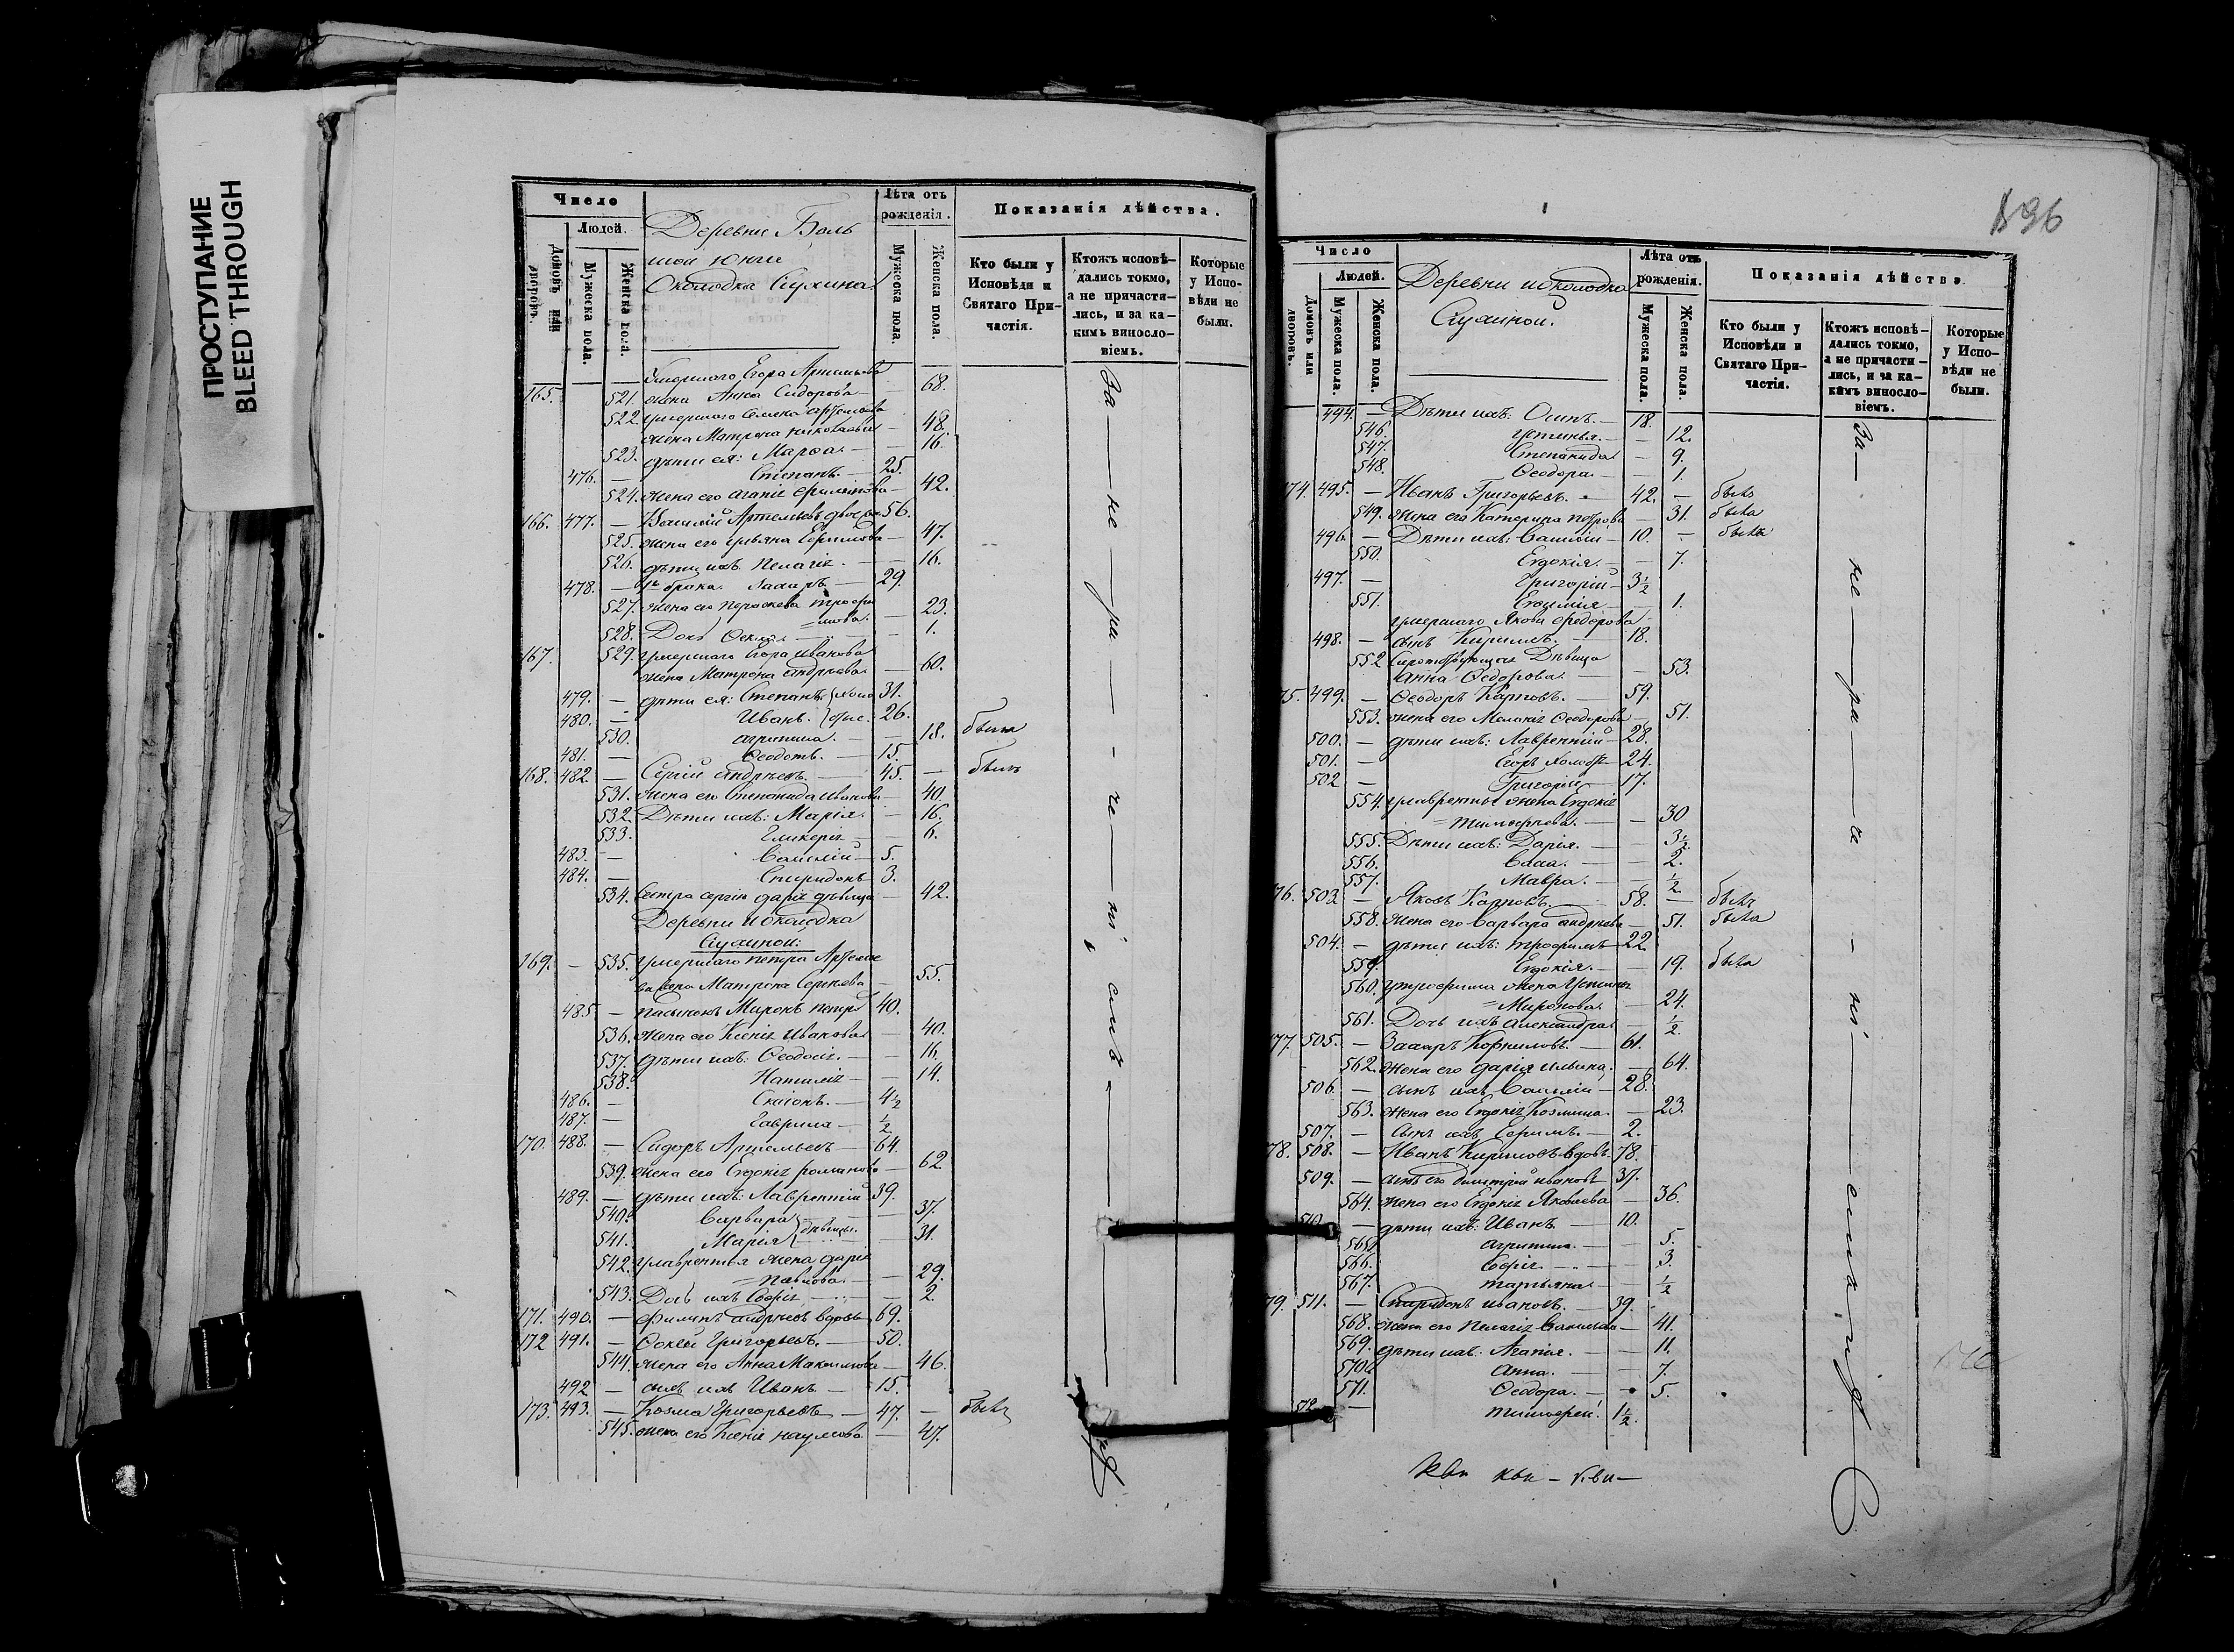 ПРОСТУПАНИЕ
BLEED THROUGH
Число
Людей.
Домовъ или дворовъ.
Мужеска пола.
Женска пола.
Деревни Боль
шой Юнги
Околодка Сухина
Лѣта отъ рожденія.
Мужеска пола.
Женска пола.
Показанія дѣйства.
Кто были у Исповѣди и Святаго Причастія.
Ктожъ исповѣдались токмо, а не причастились, и за какимъ винословіемъ.
Которые у Исповѣди не были.
Умершаго Егора Артемьева
165. 521. жена Анна Сидорова — 68.
522. умершаго Семена Артемьева
жена Матрона Николаева — 48.
523. дѣти ея: Марѳа. — 16.
476. — Степанъ. — 25.
524. жена его Агапія — 42.
166. 477. — Василій Артемьевъ 56.
525. жена его Ульяна Ефимова — 47.
526. дѣти ихъ Пелагія. — 16.
478. — 1го брака. Захаръ — 29.
527. жена его Параскева Трофи
=мова. — 23.
528. Дочь — 1.
167. 529. умершаго Егора Иванова
жена Матрона Андреева — 60.
479. — дѣти ея: Степанъ 31.
480. — Иванъ. 26.
530. Агрипина. — 18. была
481. — Ѳеодотъ. — 15.
168. 482. — Сергій Андреевъ. — 45. — былъ
531. жена его Степанида Иванова — 40.
532. Дѣти ихъ: Марія. — 16.
533. Гликерія — 6.
483. — Василій — 5.
484. — Спиридонъ 3.
534. Сестра Сергія Дарія дѣвица — 42.
Деревни и околодка
Сухиной:
169. — 535. умершаго Петра Артемье
ва жена Матрона Сергеева — 55.
485. — пасынокъ Миронъ Петровъ 40.
536. жена его Ксенія Иванова — 40.
537. дѣти ихъ: Ѳеодосія. — 16.
538. Наталія — 14.
486. — 4½
487. — Гаврила — ½
170. 488. — Сидоръ Артемьевъ — 64.
539. жена его Евдокія Романова — 62
489. — дѣти ихъ: Лаврентій 39.
540. Варвара — 37.
541. Марія } дѣвицы. — 31.
542. у Лаврентья жена Дарія
=Павлова. — 29.
543. Дочь ихъ Софія — 2.
171. 490. — Филипъ Андреевъ вдовъ 69.
172 491. — Григорьевъ. — 50.
544. жена его Анна Максимова — 46.
492 — сынъ ихъ Иванъ — 15.
173. 493. — Козма Григорьевъ — 47. — былъ
545. жена его Ксенія Наумова — 47.
За — не — ра — че — ні
896
Число
Людей.
Домовъ или дворовъ.
Мужеска пола.
Женска пола.
Деревни и околодка
Сухиной.
Лѣта отъ рожденія.
Мужеска пола.
Женска пола.
Показанія дѣйства.
Кто были у Исповѣди и Святаго Причастія.
Ктожъ исповѣдались токмо, а не причастились, и за какимъ винословіемъ.
Которые у Исповѣди не были.
494. — Дѣти ихъ: Осипъ — 18.
546. Устинья. — 12.
547. Степанида — 9.
548. Ѳеодора. — 1.
74. 495. — Иванъ Григорьевъ. — 42. — былъ
549. жена его Катерина Петрова — 31. была
496. — Дѣти ихъ: Василій — 10. — былъ
550. Евдокія. — 7.
497. — Григорій — 3½
551. Евфимія — 1.
умершаго Якова Федорова
498. — сынъ Кирилъ. — 18.
552 Дѣвица
Анна Ѳедорова. — 53.
75. 499. — Ѳеодоръ Карповъ. — 59.
553. жена его Меланія Ѳеодорова — 51.
500. — дѣти ихъ: Лаврентій — 28.
501. — Егоръ холостъ — 24.
502 — Григорій — 17.
554. у Лаврентья жена Евдокія
=Тимофеева. — 30
555. Дѣти ихъ: Дарья. — 3½
556. Васса. — 2.
557. Мавра. — ½
76. 503 — Яковъ Карповъ. — 58. — былъ
558. жена его Варвара Андреева — 51. была
504. — дѣти ихъ: Трофимъ — 22
559. Евдокія. — 19. была
560. у Трофима жена Устинья
=Миронова. — 24.
561. Дочь ихъ Александра — ½
77. 505. — Захаръ Корниловъ. — 61.
562. жена его Дарія Ильина — 64.
506. — сынъ ихъ Василій — 28.
563. жена его Евдокія Козмина. — 23.
507. — Сынъ ихъ Ефимъ. — 2.
78. 508. — Иванъ Кириловъ вдовъ. 78.
509. — сынъ его Димитрій Ивановъ 37.
564. жена его Евдокія Яковлева — 36.
510 — дѣти ихъ: Иванъ — 10.
565 Агрипина. — 5.
566. Софія — 3.
567. Татьяна — ½
79. 511. — Спиридонъ Ивановъ. — 39.
568. жена его Пелагія Васильева — 41.
569. дѣти ихъ: Агапія. — 11.
570. Анна. — 7.
571. Ѳеодора. — 5.
512. — Тимофей. 1½
За — не — ра — ні